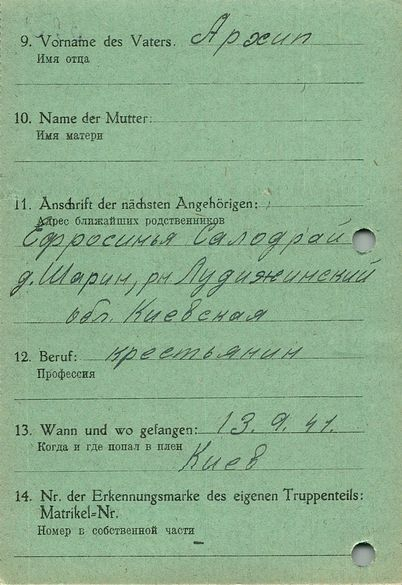 9. Vorname des Vaters. Архип
Имя отца
10. Name der Mutter:
Имя матери
11. Anschrift der nächsten Angehörigen:
Адрес ближайших родственников
Ефросинья Салодрай
д. Шарин, рн Лудижинский
обл. Киевская
12. Beruf: крестьянин
Профессия
13. Wann und wo gefangen: 13. 9. 41.
Когда и где попал в плен
Киев
14. Nr. der Erkennungsmarke des eigenen Truppenteils:
Matrikel-Nr.
Номер в собственной части
–